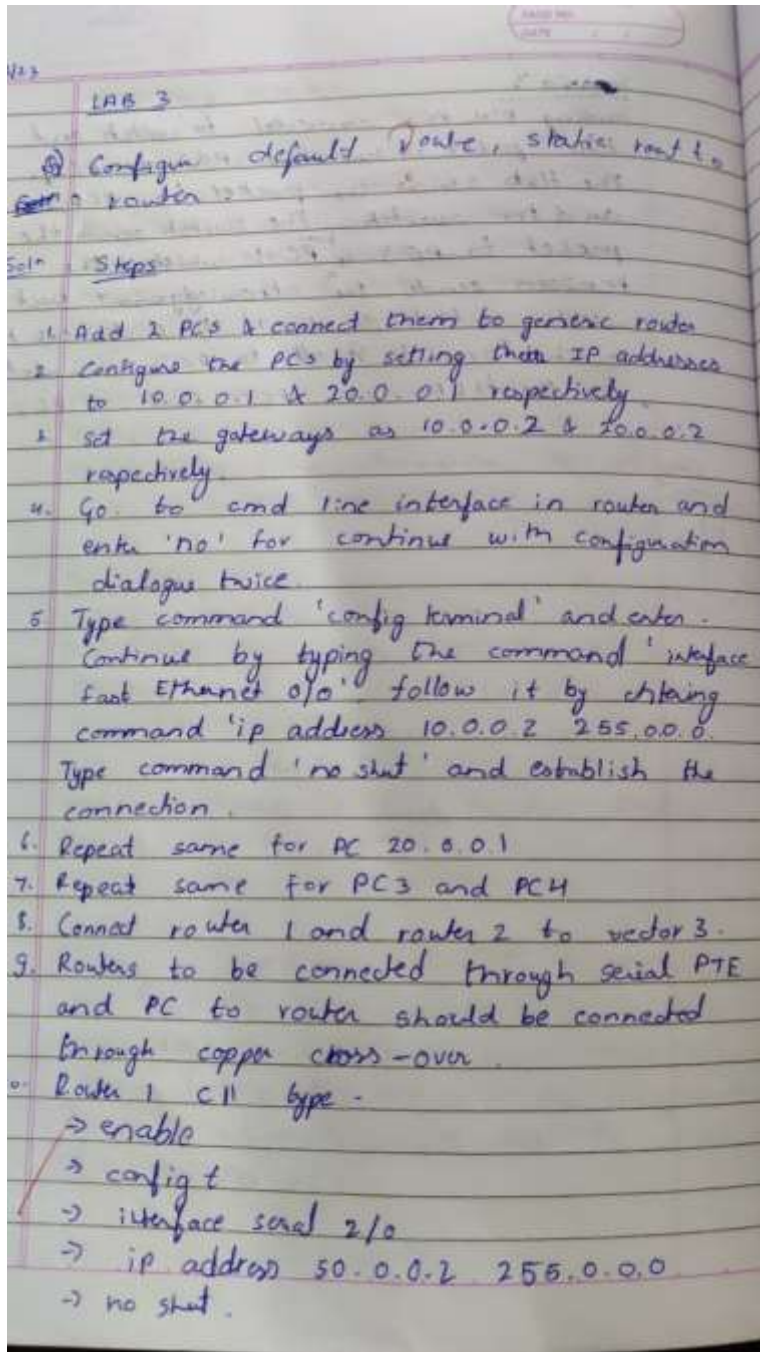 PAGE NO.
DATE / /
/23
LAB 3
Q) Configure default route, static rout to
router.
Soln Steps
1. Add 2 PC's & connect them to generic router
2 Configure the PCs by setting their IP addresses
to 10.0.0.1 & 20.0.0.1 respectively.
3. Set the gateways as 10.0.0.2 & 20.0.0.2
respectively.
4. Go to cmd line interface in router and
enter 'no' for continue with configuration
dialogue twice.
5 Type command 'config terminal' and enter.
Continue by typing the command 'interface
fast Ethernet 0/0' follow it by
command 'ip address 10.0.0.2 255.0.0.0.
Type command 'no shut' and establish the
connection.
6. Repeat same for PC 20.0.0.1
7. Repeat same for PC3 and PC4
8. Connect router 1 and router 2 to vector 3.
9. Routers to be connected through serial PTE
and PC to router should be connected
through copper cross-over.
0. Router 1 CLI type -
-> enable
-> config t
-> interface serial 2/0
-> ip address 50.0.0.2 255.0.0.0
-> no shut.